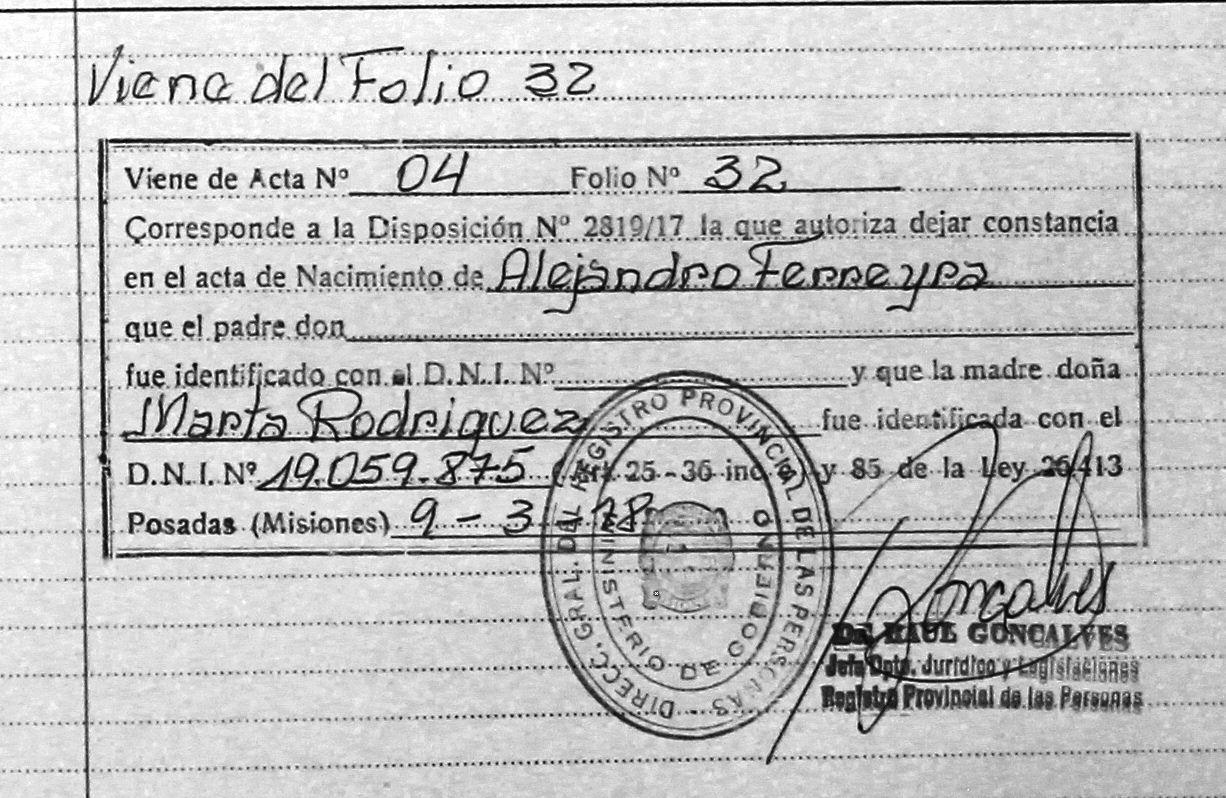 Viene del Folio 32
Viene de Acta Nº 04 Folio Nº 32
Corresponde a la Disposición Nº 2819/17 la que autoriza dejar constancia
en el acta de Nacimiento de Alejandro Ferreyra
que el padre don
fue identificado con el D.N.I. Nº y que la madre doña
Marta Rodriguez fue identificada con el
D.N.I. Nº 19.059.875 (Art. 25 - 36 inc. y 85 de la Ley 26413
Posadas (Misiones) 9 - 3 - 18
DIRECC. GRAL. DEL REGISTRO PROVINCIAL DE LAS PERSONAS
MINISTERIO DE GOBIERNO
Goncalves
Dr. RAUL GONCALVES
Jefe Dpto. Jurídico y Legislaciones
Registro Provincial de las Personas